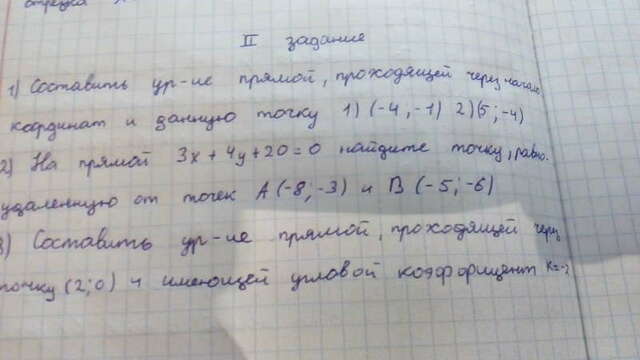 отрезка
II задание
1) Составить ур-ие прямой, проходящей через начало
координат и данную точку 1) (-4; -1) 2) (5; -4)
2) На прямой 3x + 4y + 20 = 0 найдите точку, равно-
удаленную от точек A (-8; -3) и B (-5; -6)
3) Составить ур-ие прямой, проходящей через
точку (2; 0) и имеющей угловой коэффициент